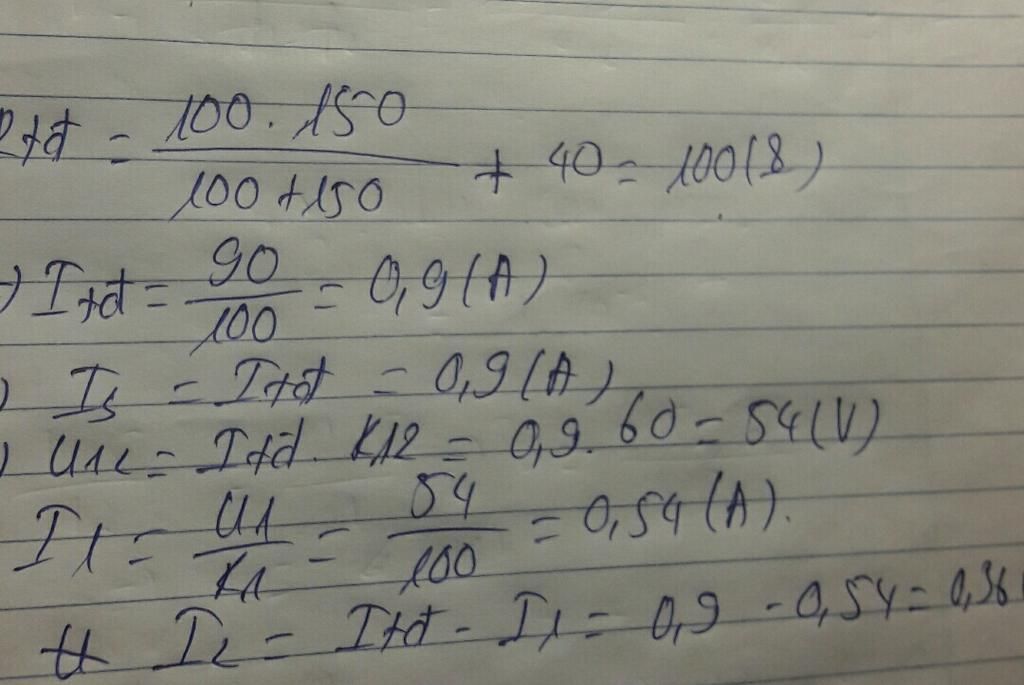 Rtđ = 100.150 / 100+150 + 40 = 100(Ω)
) Itđ = 90 / 100 = 0,9(A)
) I3 = Itđ = 0,9(A)
) U12 = Itđ. R12 = 0,9. 60 = 54(V)
I1 = U1 / R1 = 54 / 100 = 0,54(A).
I2 = Itđ - I1 = 0,9 - 0,54 = 0,36